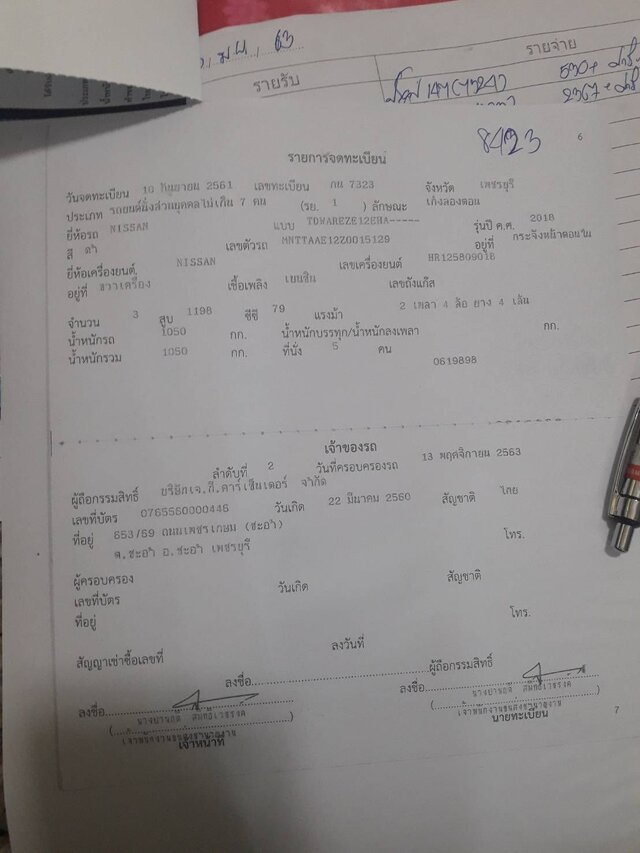 รายรับ
รายจ่าย
8423
6
รายการจดทะเบียน
วันจดทะเบียน 10 กันยายน 2561 เลขทะเบียน กน 7323 จังหวัด เพชรบุรี
ประเภท รถยนต์นั่งส่วนบุคคลไม่เกิน 7 คน (รย. 1 ) ลักษณะ เก๋งสองตอน
ยี่ห้อรถ NISSAN แบบ TDWAREZE12EHA----- รุ่นปี ค.ศ. 2018
สี ดำ เลขตัวรถ MNTTAAE12Z0015129 อยู่ที่ กระจังหน้าตอนใน
ยี่ห้อเครื่องยนต์ NISSAN เลขเครื่องยนต์ HR125809018
อยู่ที่ ขวาเครื่อง เชื้อเพลิง เบนซิน เลขถังแก๊ส
จำนวน 3 สูบ 1198 ซีซี 79 แรงม้า 2 เพลา 4 ล้อ ยาง 4 เส้น
น้ำหนักรถ 1050 กก. น้ำหนักบรรทุก/น้ำหนักลงเพลา กก.
น้ำหนักรวม 1050 กก. ที่นั่ง 5 คน
0619898
เจ้าของรถ
ลำดับที่ 2 วันที่ครอบครองรถ 13 พฤศจิกายน 2563
ผู้ถือกรรมสิทธิ์ บริษัทเจ.ดี.คาร์เซ็นเตอร์ จำกัด
เลขที่บัตร 0765560000446 วันเกิด 22 มีนาคม 2560 สัญชาติ ไทย
ที่อยู่ 653/59 ถนนเพชรเกษม (ชะอำ) โทร.
ต.ชะอำ อ.ชะอำ เพชรบุรี
ผู้ครอบครอง
เลขที่บัตร วันเกิด สัญชาติ
ที่อยู่ โทร.
สัญญาเช่าซื้อเลขที่ ลงวันที่
ลงชื่อ ผู้ถือกรรมสิทธิ์
ลงชื่อ ลงชื่อ
เจ้าพนักงานขนส่งชำนาญงาน เจ้าพนักงานขนส่งชำนาญงาน
เจ้าหน้าที่ นายทะเบียน
7